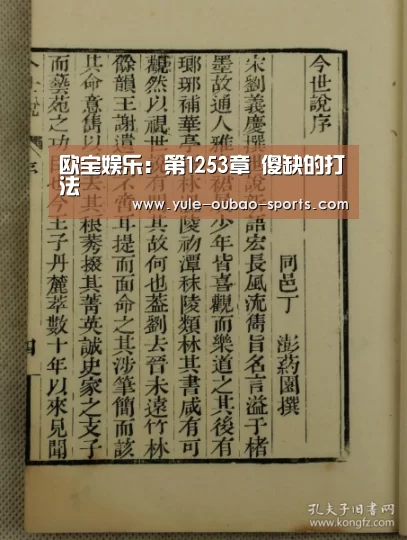 今世說序
同邑丁 澎葯園撰
宋劉義慶撰世說語宏長風流雋旨名言溢于楮
墨故通人雅裙少年皆喜觀而樂道之其後有
瑯琊補華亭林毘陵初潭秣陵類林其書咸有可
觀然以視世有其故何也蓋劉去晉未遠竹林
餘韻王謝遺不啻耳提而面命之其涉筆簡而該
其命意雋以去其稂莠掇其菁英誠史家之支子
而藝苑之功也今王子丹麓萃數十年以來見聞
序
四
欧宝娱乐：第1253章 傻缺的打
法
www.yule-oubao-sports.com
孔夫子旧书网